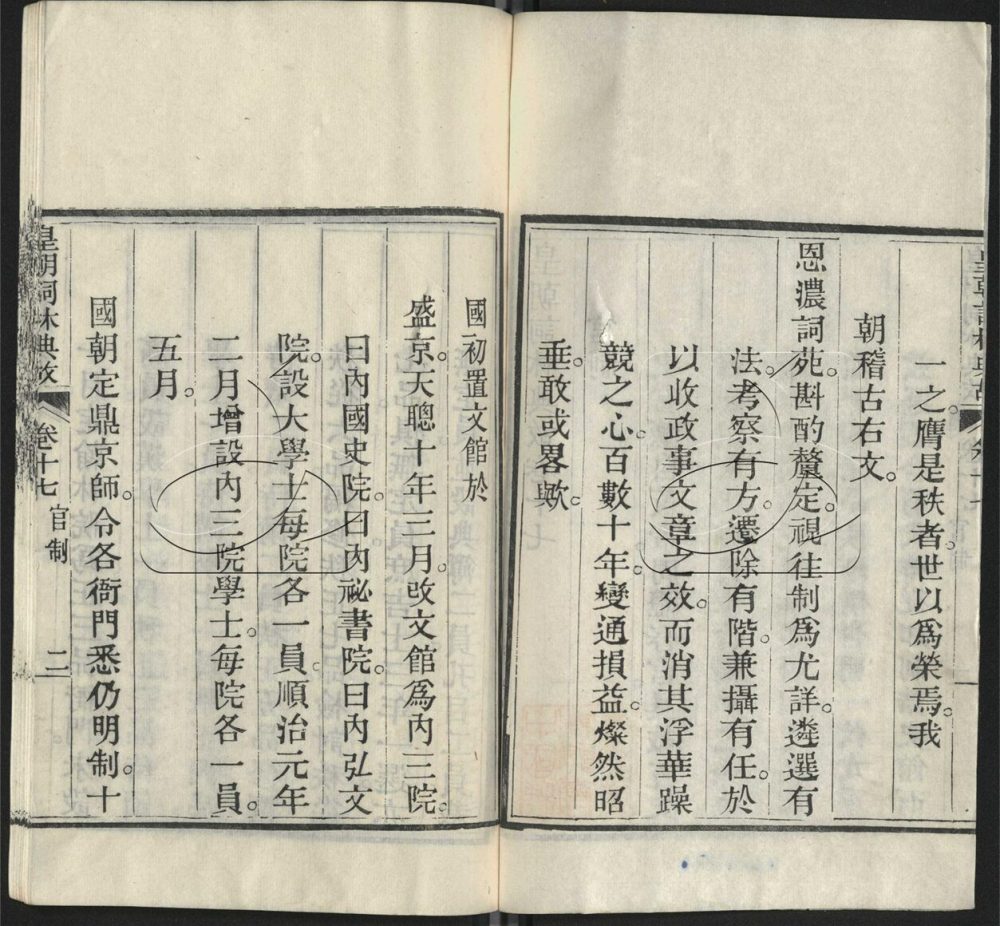 一之膺是秩者。世以爲榮焉。我
朝稽古右文。
恩濃詞苑。斟酌釐定。視往制爲尤詳。遴選有
法。考察有方。遷除有階。兼攝有任。於
以收政事文章之效。而消其浮華躁
競之心。百數十年。變通損益。燦然昭
垂。敢或畧歟。
國初置文館於
盛京。天聰十年三月。改文館爲內三院。
曰內國史院。曰內祕書院。曰內弘文
院。設大學士每院各一員。順治元年
二月增設內三院學士。每院各一員。
五月。
國朝定鼎京師。令各衙門悉仍明制。十
皇朝詞林典故 卷十七 官制 二